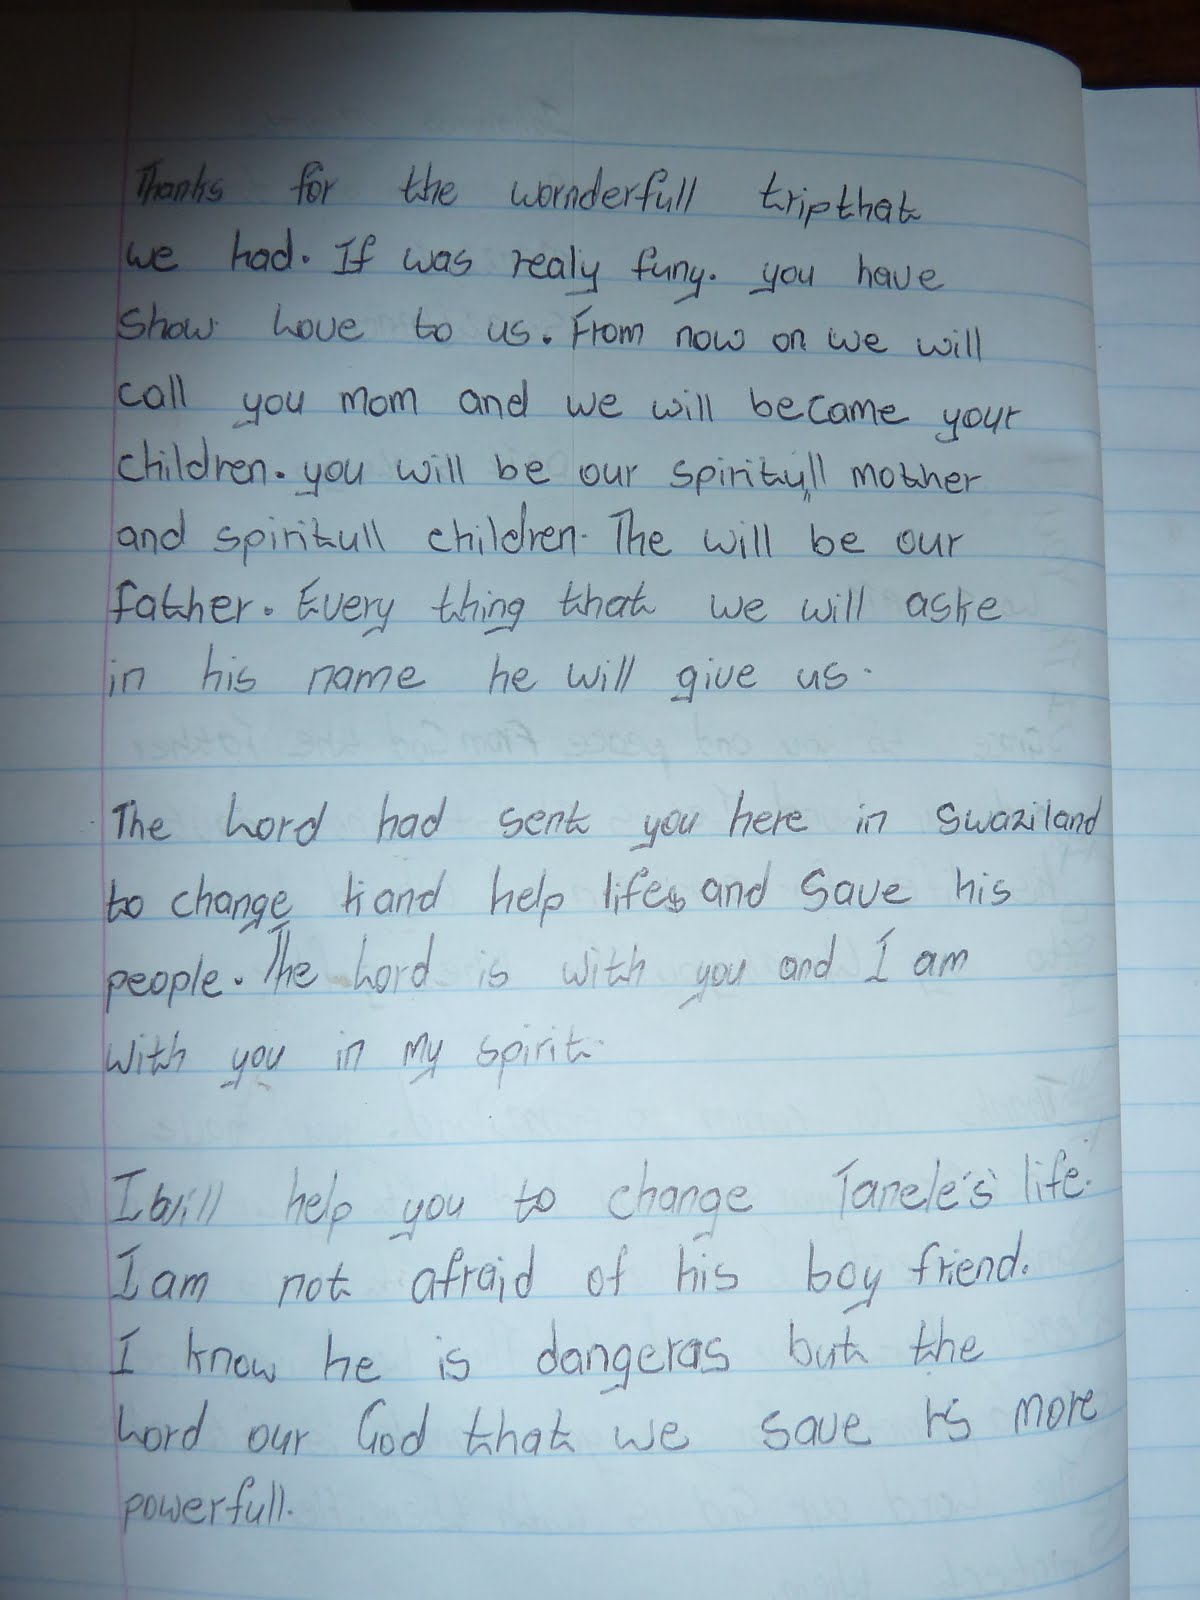 Thanks for the wornderfull tripthat
we had. If was realy funy. you have
show love to us. From now on we will
call you mom and we will became your
children. you will be our spirityll mother
and spiritull children. The will be our
father. Every thing that we will aske
in his name he will give us.
The Lord had sent you here in Swaziland
to change and help lifes and save his
people. The Lord is with you and I am
with you in my spirit.
I will help you to change Tanele's life.
I am not afraid of his boy friend.
I know he is dangeras but the
Lord our God that we save is more
powerfull.